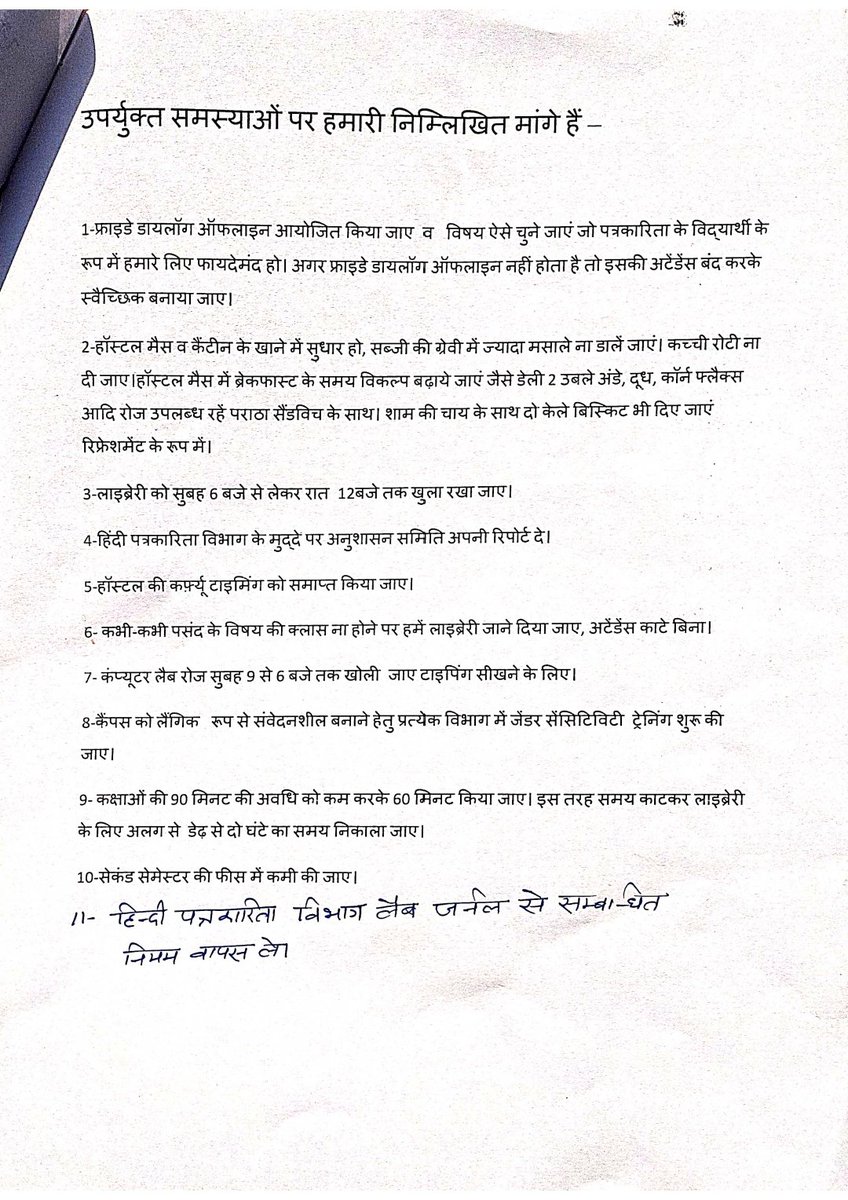 उपर्युक्त समस्याओं पर हमारी निम्लिखित मांगे हैं –
1-फ्राइडे डायलॉग ऑफलाइन आयोजित किया जाए व विषय ऐसे चुने जाएं जो पत्रकारिता के विद्यार्थी के
रूप में हमारे लिए फायदेमंद हो। अगर फ्राइडे डायलॉग ऑफलाइन नहीं होता है तो इसकी अटेंडेंस बंद करके
स्वैच्छिक बनाया जाए।
2-हॉस्टल मैस व कैंटीन के खाने में सुधार हो, सब्जी की ग्रेवी में ज्यादा मसाले ना डालें जाएं। कच्ची रोटी ना
दी जाए।हॉस्टल मैस में ब्रेकफास्ट के समय विकल्प बढ़ाये जाएं जैसे डेली 2 उबले अंडे, दूध, कॉर्न फ्लैक्स
आदि रोज उपलब्ध रहें पराठा सैंडविच के साथ। शाम की चाय के साथ दो केले बिस्किट भी दिए जाएं
रिफ्रेशमेंट के रूप में।
3-लाइब्रेरी को सुबह 6 बजे से लेकर रात 12बजे तक खुला रखा जाए।
4-हिंदी पत्रकारिता विभाग के मुद्दे पर अनुशासन समिति अपनी रिपोर्ट दे।
5-हॉस्टल की कर्फ़्यू टाइमिंग को समाप्त किया जाए।
6- कभी-कभी पसंद के विषय की क्लास ना होने पर हमें लाइब्रेरी जाने दिया जाए, अटेंडेंस काटे बिना।
7- कंप्यूटर लैब रोज सुबह 9 से 6 बजे तक खोली जाए टाइपिंग सीखने के लिए।
8-कैंपस को लैंगिक रूप से संवेदनशील बनाने हेतु प्रत्येक विभाग में जेंडर सेंसिटिविटी ट्रेनिंग शुरू की
जाए।
9- कक्षाओं की 90 मिनट की अवधि को कम करके 60 मिनट किया जाए। इस तरह समय काटकर लाइब्रेरी
के लिए अलग से डेढ़ से दो घंटे का समय निकाला जाए।
10-सेकंड सेमेस्टर की फीस में कमी की जाए।
11- हिन्दी पत्रकारिता विभाग लैब जर्नल से सम्बान्धित
नियम वापस ले।